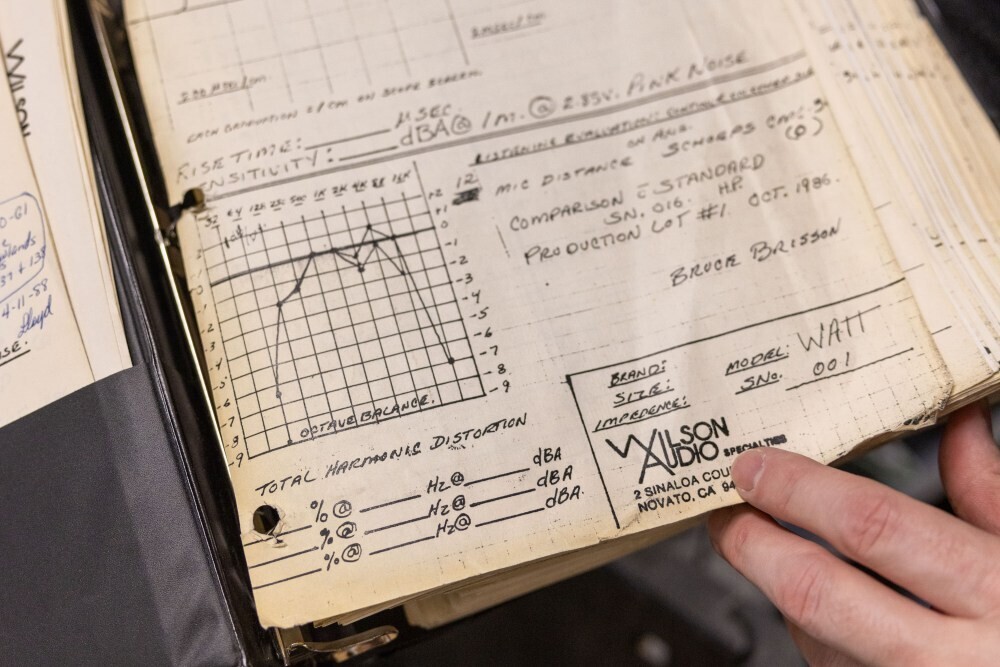 WILSON
4-11-88
Lloyd
200 MHO/cm.
EACH GRADUATION 2/CM ON SCOPE SCREEN.
RISE TIME: ______ μSEC.
SENSITIVITY: ______ dBA @ 1M. @ 2.83V. PINK NOISE
LISTENING EVALUATION:
ON ANG.
12 MIC DISTANCE SCHOEPS
COMPARISON = STANDARD
SN. 016. H.P.
PRODUCTION LOT #1. OCT. 1986.
BRUCE BRISSON
32 64 125 250 500 1K 2K 4K 8K 16K
+2
+1
0
-1
-2
-3
-4
-5
-6
-7
-8
-9
OCTAVE BALANCE.
TOTAL HARMONIC DISTORTION
% @ ______ Hz @ ______ dBA
% @ ______ Hz @ ______ dBA
% @ ______ Hz @ ______ dBA.
BRAND:
SIZE:
IMPEDENCE:
MODEL: WATT
SNO. 001
WILSON
AUDIO SPECIALTIES
2 SINALOA
NOVATO, CA